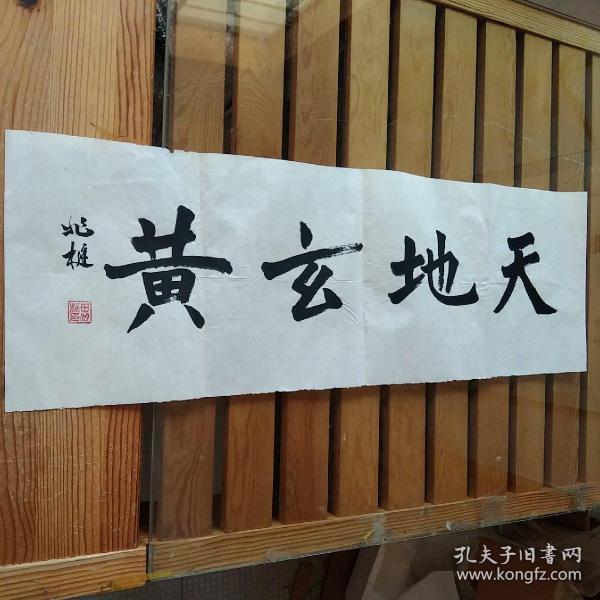 天地玄黄
兆權
孔夫子旧書网
www.kongfz.com